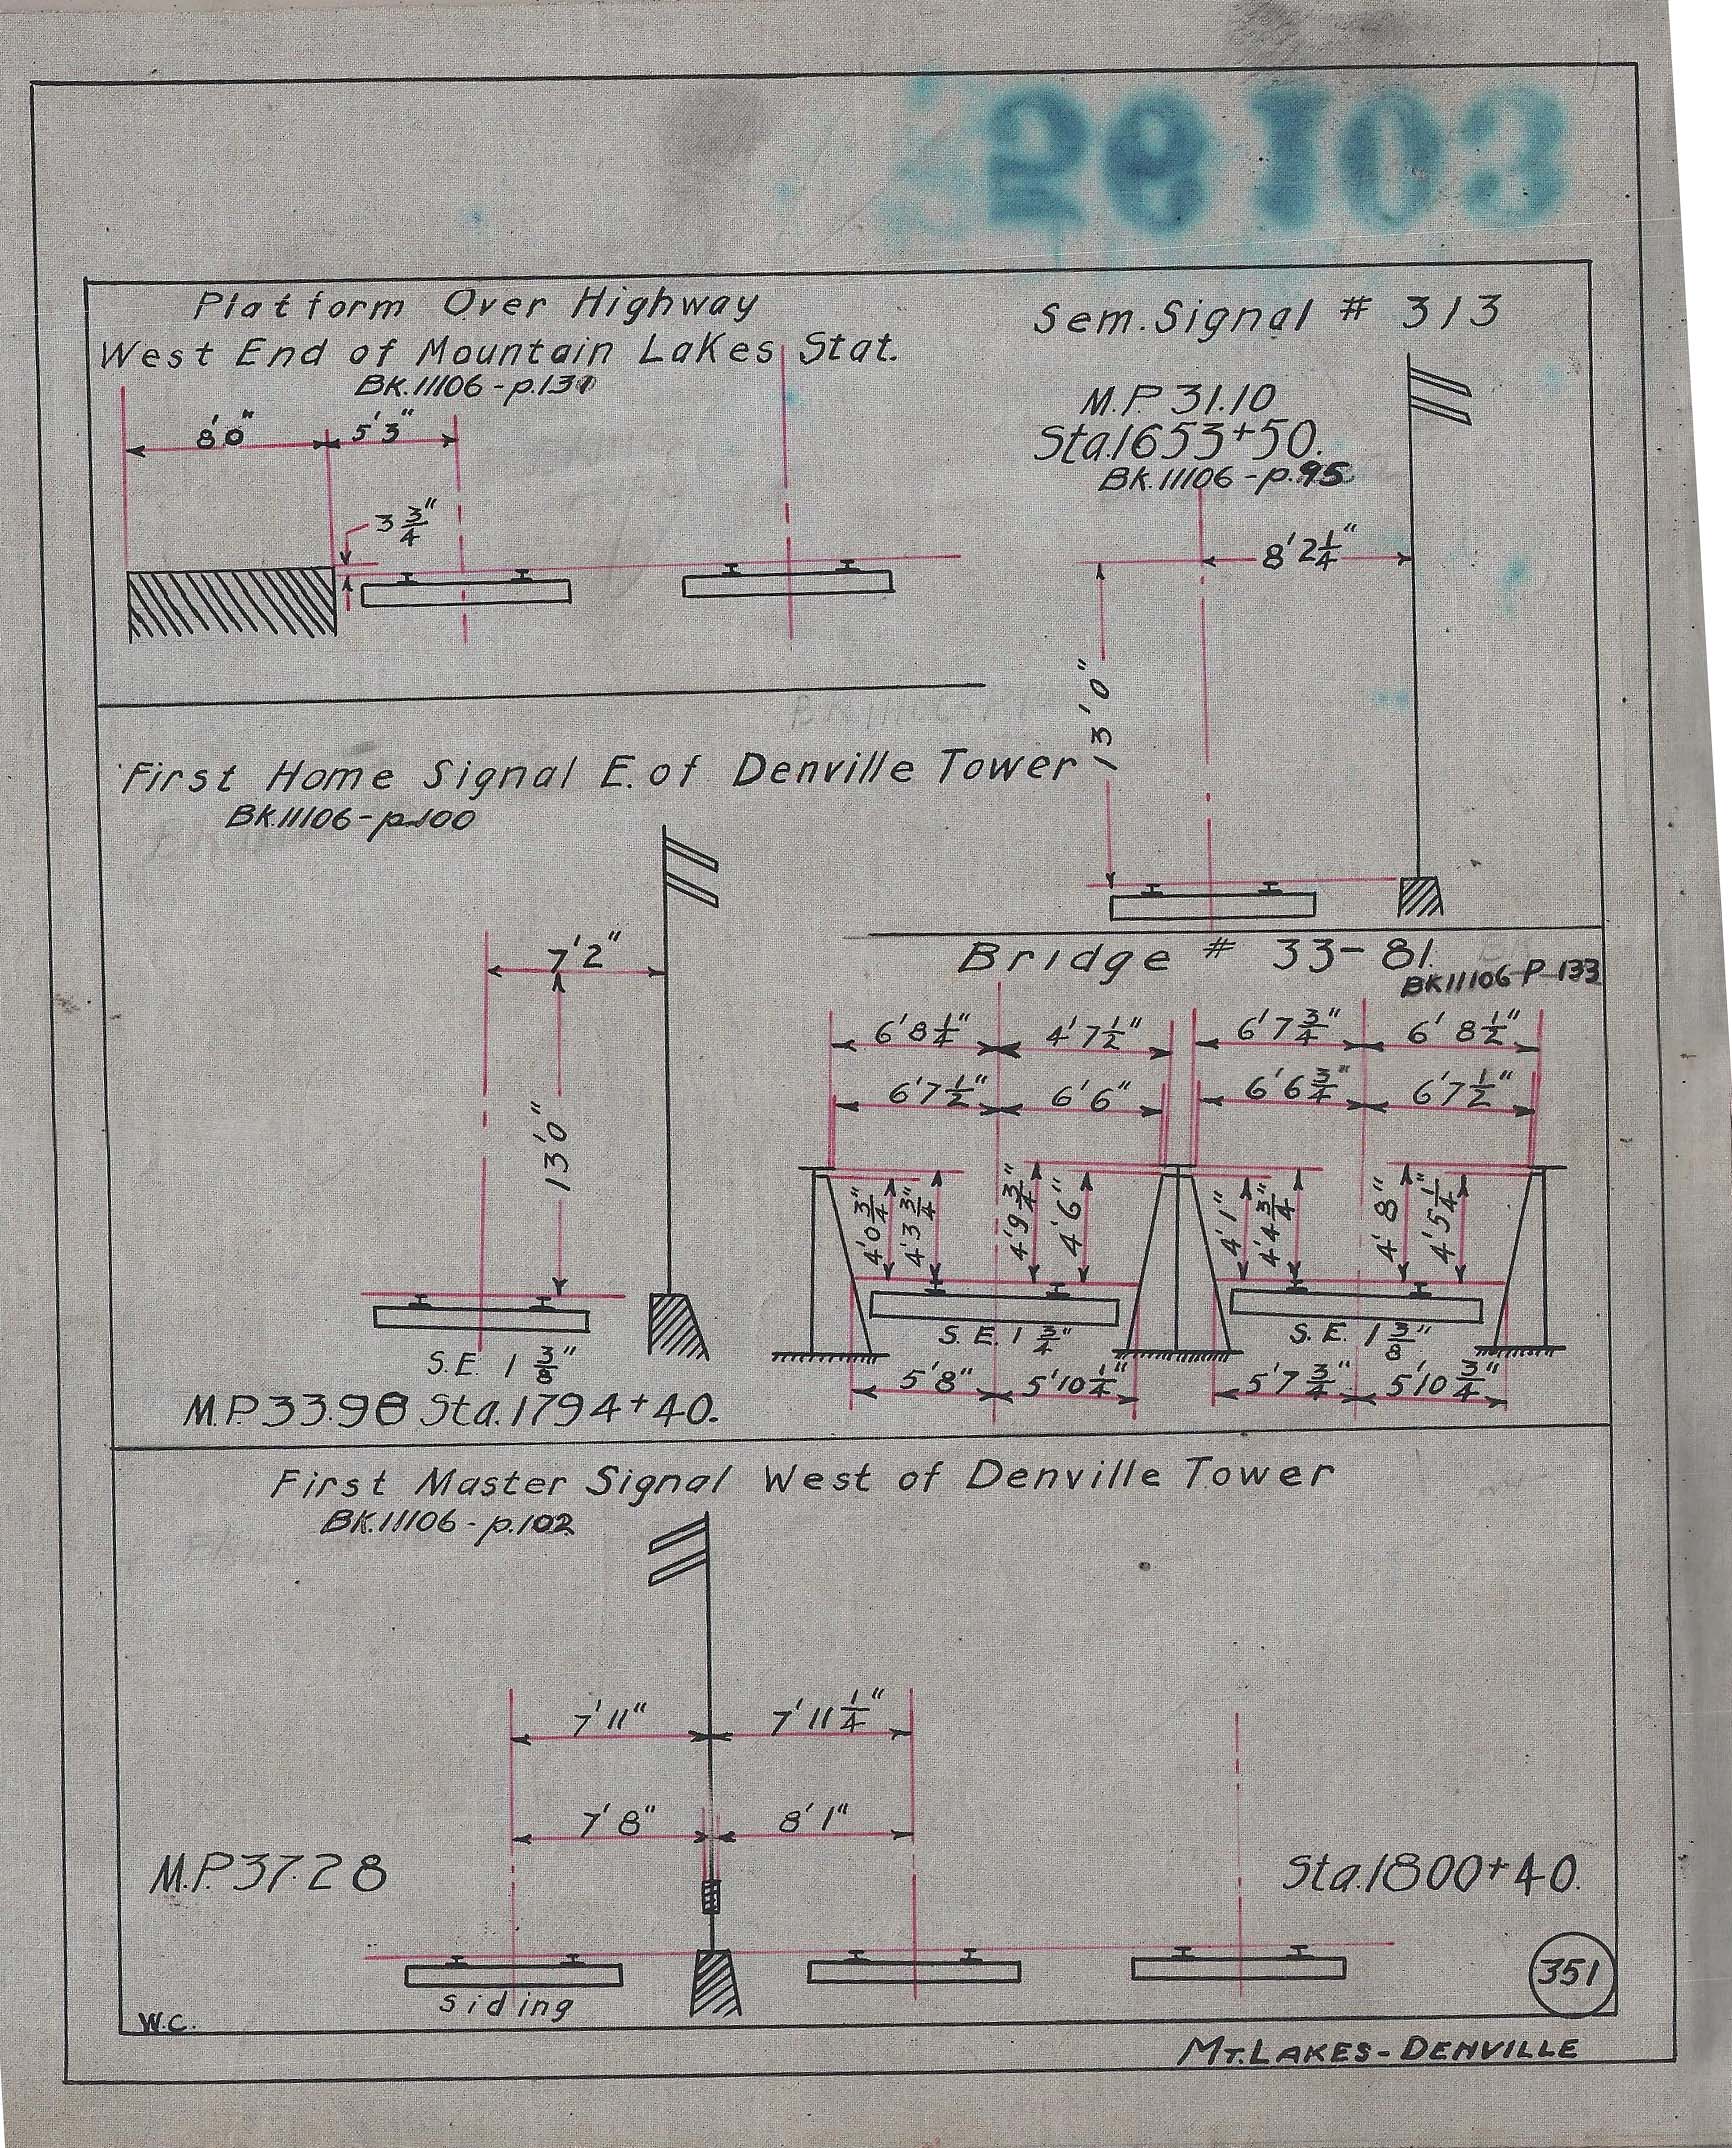 26103
Platform Over Highway
West End of Mountain Lakes Stat.
BK.11106-p.131
8'0"
5'3"
3 3/4"
Sem. Signal # 313
M.P. 31.10
Sta.1653+50.
BK.11106-p.95
8' 2 1/4"
13'0"
First Home Signal E. of Denville Tower
BK.11106-p.100
7'2"
13'0"
S.E. 1 3/8"
M.P.33.98 Sta.1794+40.
Bridge # 33-81.
BK11106-P-133
6' 8 1/4" 4' 7 1/2" 6' 7 3/4" 6' 8 1/2"
6' 7 1/2" 6' 6" 6' 6 3/4" 6' 7 1/2"
4' 0 3/4" 4' 3 3/4" 4' 9 3/4" 4' 6" 4' 1" 4' 4 3/4" 4' 8" 4' 5 1/4"
S.E. 1 3/4" S.E. 1 3/8"
5' 8" 5' 10 1/4" 5' 7 3/4" 5' 10 3/4"
First Master Signal West of Denville Tower
BK.11106-p.102
7' 11" 7' 11 1/4"
7' 8" 8' 1"
M.P.37.28
Sta.1800+40.
siding
W.C.
351
MT. LAKES-DENVILLE